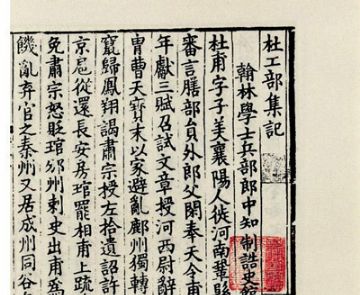 杜工部集記
翰林學士兵部郎中知制誥史館
杜甫字子美襄陽人徙河南鞏縣
審言膳部員外郎父閑奉天令甫
年獻三賦召試文章授河西尉辭
胄曹天寶末以家避亂鄜州獨轉
竄歸鳳翔謁肅宗授左拾遺詔許
京扈從還長安房琯罷相甫上疏
免肅宗怒貶琯邠州刺史出甫爲
饑亂弃官之秦州又居成州同谷